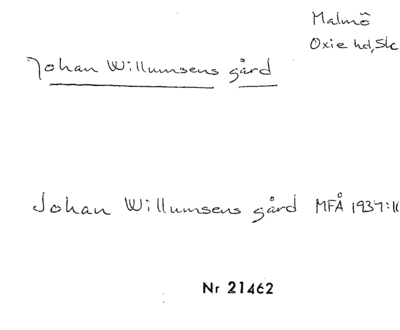 Malmö
Oxie hd, Sk
Johan Willumsens gård
Johan Willumsens gård MFÅ 1937:1
Nr 21462